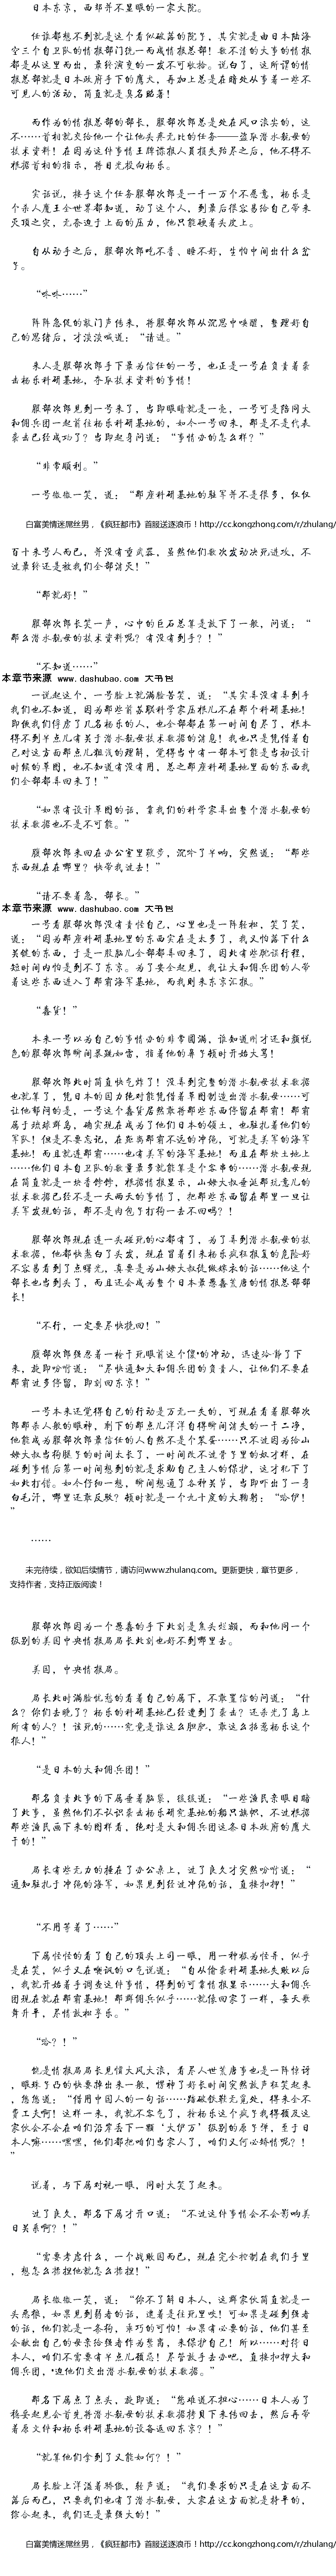 日本东京，西部并不显眼的一家大院。
任谁都想不到就是这个看似破落的院子，其实就是由日本陆海
空三个自卫队的情报部门统一而成情报总部！数不清的大事的情报
都是从这里而出，最终演变的一发不可收拾。说白了，这所谓的情
报总部就是日本政府手下的鹰犬，再加上总是在暗处从事着一些不
可见人的活动，简直就是臭名昭著！
而作为的情报总部的部长，服部次郎总是处在风口浪尖的，这
不……首相就交给他一个让他头疼无比的任务——盗取潜水航母的
技术资料！在因为这件事情王牌谍报人员损失殆尽之后，他不得不
根据首相的指示，将目光投向杨乐。
实话说，接手这个任务服部次郎是一千一万个不愿意，杨乐是
个杀人魔王全世界都知道，动了这个人，到最后很容易给自己带来
灭顶之灾，无奈迫于上面的压力，他只能硬着头皮上。
自从动手之后，服部次郎吃不香、睡不好，生怕中间出什么岔
子。
“咚咚……”
阵阵急促的敲门声传来，将服部次郎从沉思中唤醒，整理好自
己的思绪后，才淡淡喊道：“请进。”
来人是服部次郎手下最为信任的一号，也正是一号在负责着袭
击杨乐科研基地，夺取技术资料的事情！
服部次郎见到一号来了，当即眼睛就是一亮，一号可是陪同大
和佣兵团一起前往杨乐科研基地的，如今一号回来，那是不是代表
袭击已经成功了？当即起身问道：“事情办的怎么样？”
“非常顺利。”
一号微微一笑，道：“那座科研基地的驻军并不是很多，仅仅
白富美情迷屌丝男，《疯狂都市》首服送逐浪币！http://cc.kongzhong.com/r/zhulang/
百十来号人而已，并没有重武器，虽然他们数次发动决死进攻，不
过最终还是被我们全部消灭！”
“那就好！”
服部次郎长笑一声，心中的巨石总算是放下了一般，问道：“
那么潜水航母的技术资料呢？有没有到手？！”
“不知道……”
本章节来源 www.dashubao.com 大书包
一说起这个，一号脸上就满脸苦笑，道：“其实寻没有寻到手
我们也不知道，因为那些前苏联科学家压根儿不在那个科研基地！
即使我们俘虏了几名杨乐的人，也全部都在第一时间自尽了，根本
得不到半点儿有关于潜水航母技术数据的消息！我也只是凭借着自
己对这方面那点儿粗浅的理解，觉得当中有一部本可能是当初设计
时候的草图，也不知道有没有用，总之那座科研基地里面的东西我
们全部都寻回来了！”
“如果有设计草图的话，靠我们的科学家寻出整个潜水航母的
技术数据也不是不可能。”
服部次郎来回在办公室里踱步，沉吟了半晌，突然道：“那些
东西现在在哪里？快带我过去！”
“请不要着急，部长。”
本章节来源 www.dashubao.com 大书包
一号看服部次郎没有责怪自己，心里也是一阵轻松，笑了笑，
道：“因为那座科研基地里的东西实在是太多了，我又怕落下什么
关键的东西，于是一股脑儿全部都寻回来了，因此有些耽误行程，
短时间内怕是到不了东京。为了安全起见，我让大和佣兵团的人带
着这些东西进入了那霸海军基地，而我则来东京汇报。”
“蠢货！”
本来一号以为自己的事情办的非常圆满，谁知道刚才还和颜悦
色的服部次郎瞬间暴跳如雷，指着他的鼻子顿时开始大骂！
服部次郎此时简直快气炸了！没寻到完整的潜水航母技术数据
也就算了，凭日本的国力绝对能凭借着草图制造出潜水航母……可
让他郁闷的是，一号这个蠢货居然敢将那些东西停留在那霸！那霸
属于琉球群岛，确实现在成为了他们日本的领土，也驻扎着他们的
军队！但是不要忘记，在距离那霸不远的冲绳，可就是美军的海军
基地！而且就连那霸……也有美军的海军基地！而且在那块土地上
……他们日本自卫队的数量最多就能算是个零串的……潜水航母现
在简直就是一块香饽饽，根据情报显示，山姆大叔垂涎那玩意儿的
技术数据已经不是一天两天的事情了，把那些东西留在那里一旦让
美军发现的话，那不是肉包子打狗一去不回吗？！
服部次郎现在连一头碰死的心都有了，为了寻到潜水航母的技
术数据，他都快愁白了头发，现在冒着引来杨乐疯狂报复的危险好
不容易看到了点曙光，真要是为山姆大叔徒做嫁衣的话……他这个
部长也当到头了，而且还会成为整个日本最愚蠢荒唐的情报总部部
长！
“不行，一定要尽快挽回！”
服部次郎强忍着一枪干死眼前这个傻*的冲动，迅速冷静了下
来，旋即吩咐道：“尽快通知大和佣兵团的负责人，让他们不要在
那霸过多停留，即刻回东京！”
一号本来还觉得自己的行动是万无一失的，可现在看着服部次
郎那杀人般的眼神，剩下的那点儿洋洋自得瞬间消失的一干二净，
他能成为服部次郎最信任的人自然不是个笨蛋……只不过因为给山
姆大叔当狗腿子的时间太长了，一时间改不过骨子里的奴才样，在
碰到事情后第一时间想到的就是求助自己主人的保护，这才犯下了
如此打错。如今仔细一想，瞬间想通了各种关节，当即吓出了一身
白毛汗，哪里还敢反驳？顿时就是一个九十度的大鞠躬：“哈伊！
”
……
未完待续，欲知后续情节，请访问www.zhulang.com。更新更快，章节更多，
支持作者，支持正版阅读！
服部次郎因为一个愚蠢的手下此刻是焦头烂额，而和他同一个
级别的美国中央情报局局长此刻也好不到哪里去。
美国，中央情报局。
局长此时满脸忧愁的看着自己的属下，不敢置信的问道：“什
么？你们去晚了？杨乐的科研基地已经遭到了袭击？还杀光了岛上
所有的人？！该死的……究竟是谁这么胆肥，敢这么招惹杨乐这个
狠人！”
“是日本的大和佣兵团！”
那名负责此事的下属垂着脑袋，缓缓道：“一些渔民亲眼目睹
了此事，虽然他们不认识袭击杨乐研究基地的船只旗帜，不过根据
那些渔民画下来的图样看，绝对是大和佣兵团这条日本政府的鹰犬
干的！”
局长有些无力的捶在了办公桌上，过了良久才突然吩咐道：“
通知驻扎于冲绳的海军，如果见到经过冲绳的话，直接扣押！”
“不用等着了……”
下属怪怪的看了自己的顶头上司一眼，用一种极为怪异，似乎
是在笑，似乎又在嘲讽的口气说道：“自从偷袭科研基地失败以后
，我就开始着手调查这件事情，得到的可靠情报显示……大和佣兵
团现在就在那霸基地！那群佣兵似乎……就像回家了一样，每天歌
舞升平，尽情放松享乐。”
“哈？！”
饶是情报局局长见惯大风大浪，看尽人世荒唐事也是一阵惊讶
，眼珠子凸的快要掉出来一般，愣神了好长时间突然放声狂笑起来
，悠悠道：“借用中国人的一句话……踏破铁鞋无觅处，得来全不
费工夫啊！这样一来，我就不客气了，拎杨乐这个疯子我得顾及这
家伙会不会在咱们沿岸丢下一颗‘大伊万’级别的原子弹，至于日
本人嘛……嘿嘿，他们都把咱们当家人了，咱们又何必矫情呢？！
”
说着，与下属对视一眼，同时大笑了起来。
过了良久，那名下属才开口道：“不过这件事情会不会影响美
日关系啊？！”
“需要考虑什么，一个战败国而已，现在完全控制在我们手里
，想怎么揉捏他就怎么揉捏！”
局长微微一笑，道：“你不了解日本人，这群家伙简直就是一
头恶狼，如果见到弱者的话，逮着是往死里咬！可如果是碰到强者
的话，他们就是一条狗，乖巧的可怕！如果有必要的话，他们甚至
会献出自己的母亲给强者作为祭品，来保护自己！所以……对待日
本人，咱们不需要有半点儿顾忌！尽管放手去办吧，直接扣押大和
佣兵团，*迫他们交出潜水航母的技术数据。”
那名下属点了点头，旋即道：“您难道不担心……日本人为了
稳妥起见会首先将潜水航母技术数据拷贝下来传回去，然后再带
着原文件和杨乐科研基地的设备返回东京？！”
“就算他们拿到了又能如何？！”
局长脸上洋溢着骄傲，轻声道：“我们要求的只是在这方面不
落后而已，只要我们也有了潜水航母，大家在这方面就是持平的，
综合起来，我们还是最强大的！”
白富美情迷屌丝男，《疯狂都市》首服送逐浪币！http://cc.kongzhong.com/r/zhulang/